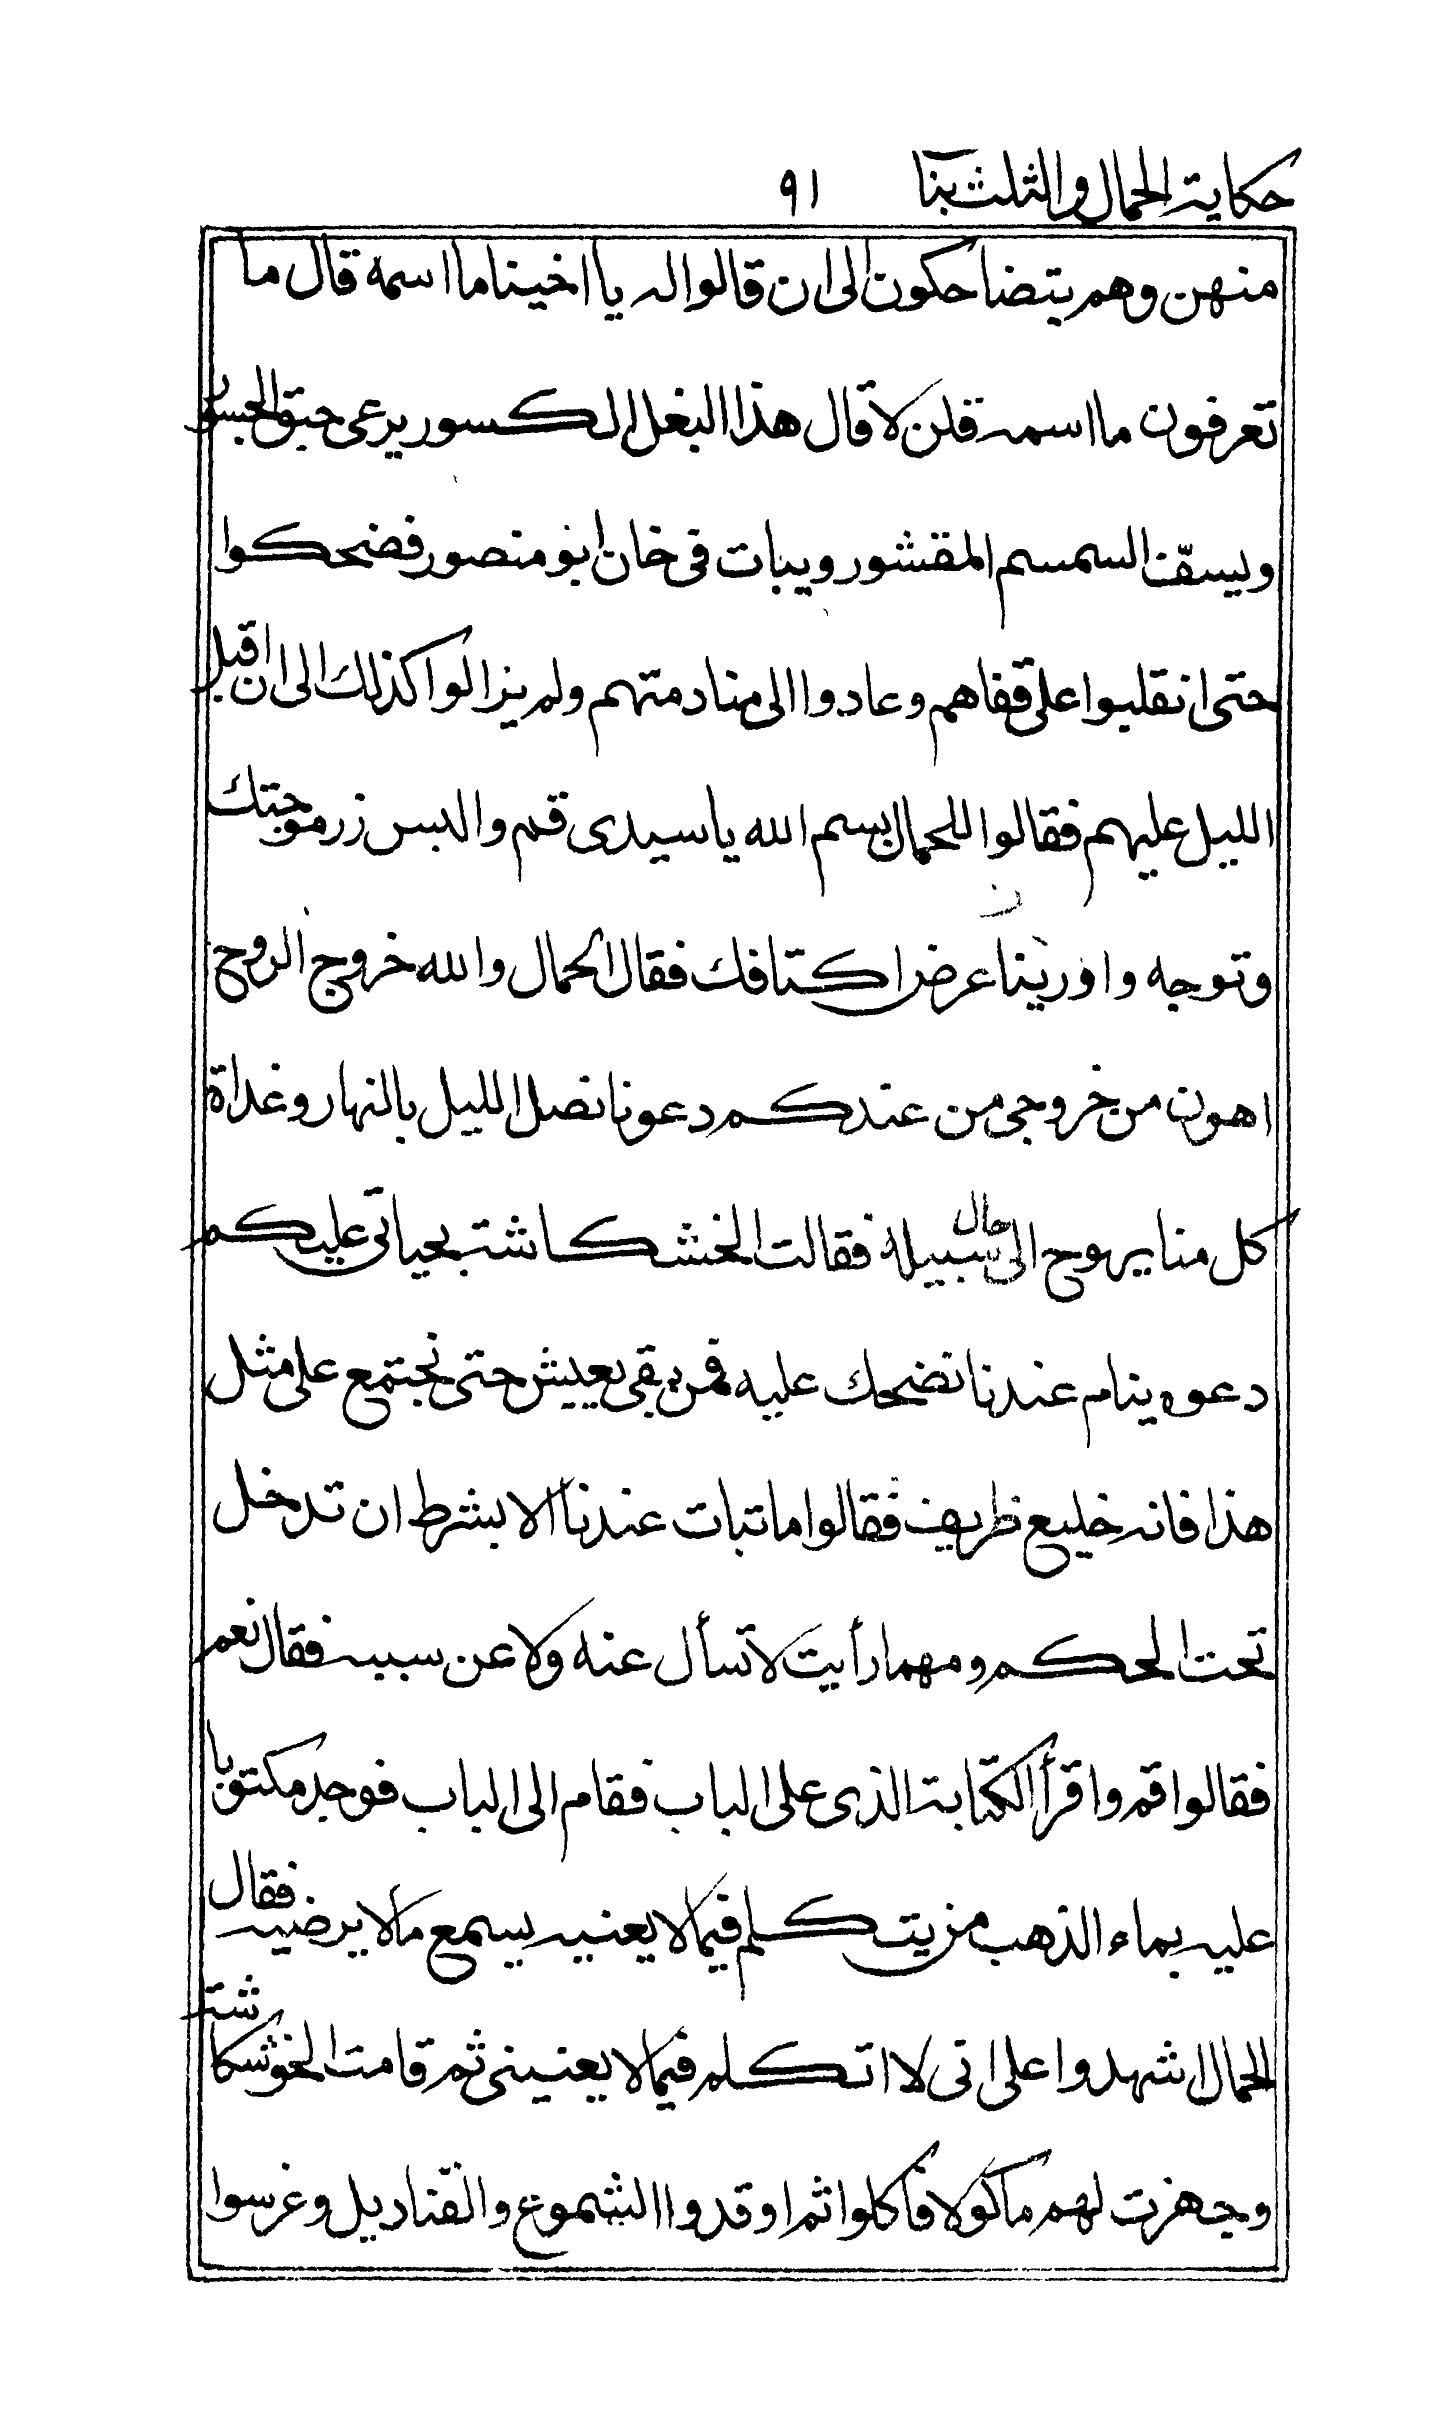 حكاية الحمال والثلث بنات ٩١
منهن وهم يتضاحكون الى ان قالوا له يا اخينا ما اسمه قال ما
تعرفون ما اسمه قلن لا قال هذا البغل الكسور يرعى حبق الجسور
ويسفّ السمسم المقشور ويبات في خان ابو منصور فضحكوا
حتى انقلبوا على قفاهم وعادوا الى منادمتهم ولم يزالوا كذلك الى ان اقبل
الليل عليهم فقالوا للحمال بسم الله يا سيدى قم والبس زرموجتك
وتوجه واورينا عرض اكتافك فقال الحمال والله خروج الروح
اهون من خروجى من عندكم دعونا نصل الليل بالنهار وغداة
كل منا يروح الى حال سبيله فقالت الخشكاشة بحياتى عليكم
دعوه ينام عندنا نضحك عليه فمن بقى يعيش حتى نجتمع على مثل
هذا فانه خليع ظريف فقالوا ما تبات عندنا الا بشرط ان تدخل
تحت الحكم ومهما رأيت لا تسأل عنه ولا عن سببه فقال نعم
فقالوا قم واقرأ الكتابة الذى على الباب فقام الى الباب فوجد مكتوبا
عليه بماء الذهب من يتكلم فيما لا يعنيه يسمع ما لا يرضيه فقال
الحمال اشهدوا على انى لا اتكلم فيما لا يعنينى ثم قامت الخوشكاشة
وجهزت لهم مأكولا فأكلوا ثم اوقدوا الشموع والقناديل وغرسوا